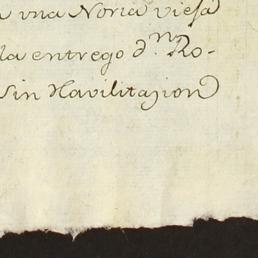 vna Noria viesa
la entrego dn. Ro-
sin Havilitazion